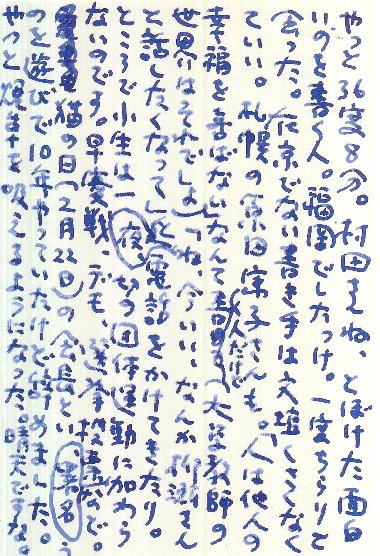 やっと36度8分。村田きね、とぼけた面白
いのを書く人。福岡でしたっけ。一度ちらりと
会った。在京でない書き手は文壇くさくなく
ていい。札幌の原田さんも。「人は他人の
幸福を喜ばない」なんて書く(大学教師の
世界はそれでしょ)「ね、今いい、なんか柳瀬さん
と話したくなって」と電話をかけてきたり。
ところで小生は一切の団体運動に加わら
ないのです。早慶戦、デモ、選挙投票まで。
猫の日(2月22日)の会長とい、署名う
つを遊びで10年やっていたけど辞めました。
やっと煙草を吸えるようになった。晴天ですな。